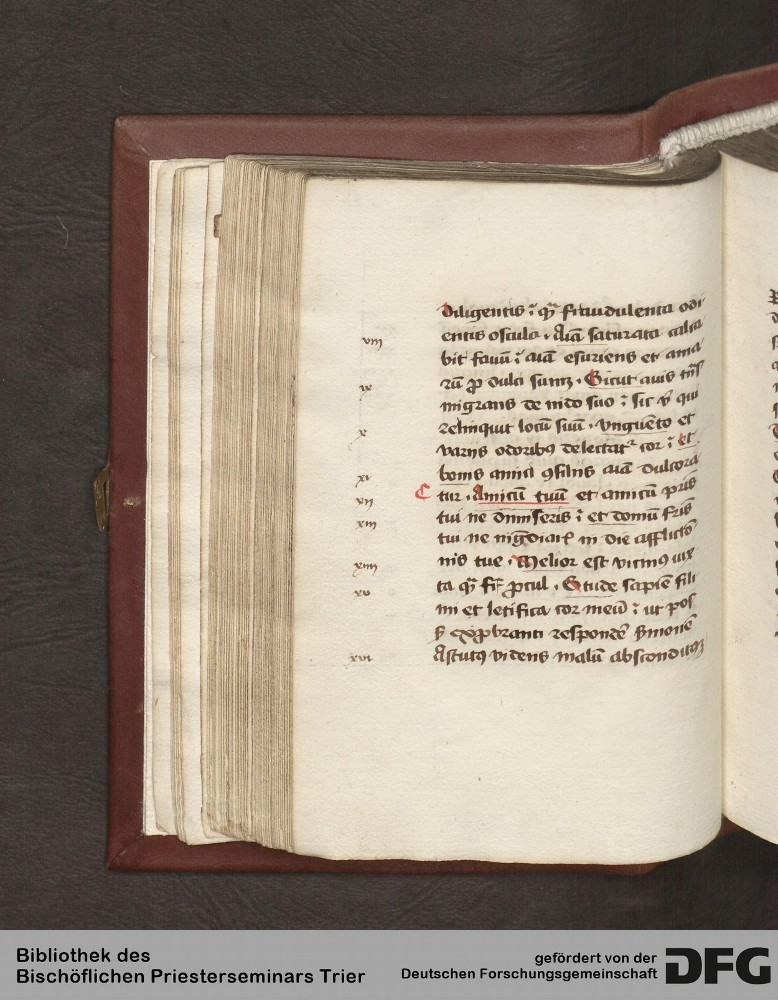 diligentis : qͣ fraudulenta odi
viii entis oscula . Aīa saturata calca
bit fauū : aīa esuriens et ama
ix rū ꝓ dulci sumꝫ . Sicut auis tͣns
migrans de nido suo : sic vͥ qui
x relinquit locū suū . vnguēto et
varijs odoribꝰ delectatᷣ cor : et
xi bonis amici ꝯsilijs aīa dulcora
xii tur . Amicū tuū et amicū pͣris
xiii tui ne dimiseris : et domū fͬis
tui ne īgͬdiar̄ in die afflictō
xiiii nis tue . Melior est vicinꝰ iux
xv ta qͣ fͬ ꝓcul . Stude sapiē fili
mi et letifica cor meū : ut pos
exꝓbranti respondē sͬmonē
xvi Astutꝰ videns malū absconditꝰ
Bibliothek des
Bischöflichen Priesterseminars Trier
gefördert von der
Deutschen Forschungsgemeinschaft
DFG